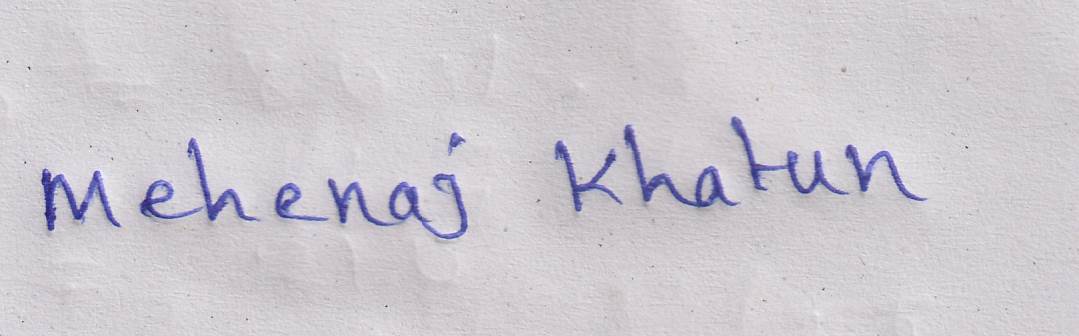 Mehenaj Khatun